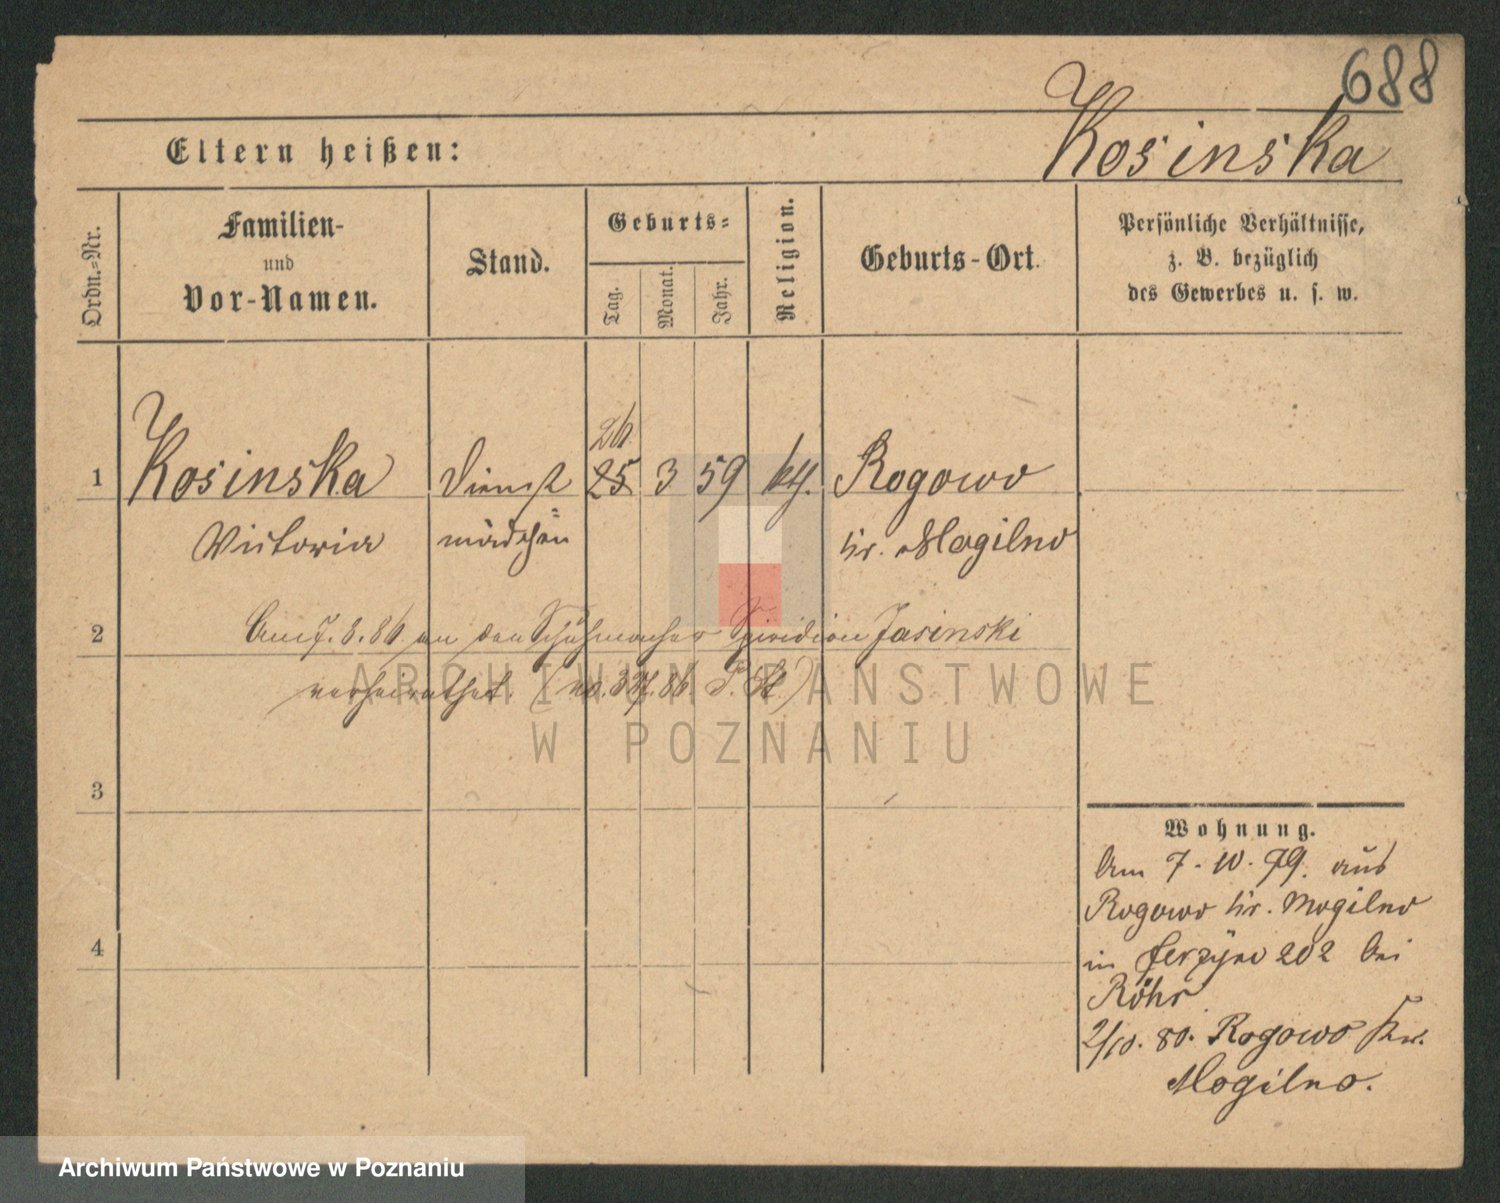 688
Kosinska
Eltern heißen:
Ordn.-Nr.
Familien-
und
Vor-Namen.
Stand.
Geburts-
Tag.
Monat.
Jahr.
Religion.
Geburts-Ort.
Persönliche Verhältnisse,
z. B. bezüglich
des Gewerbes u. s. w.
26
1 Kosinska Dienst 25 3 59 kth. Rogowo
Victoria mädchen Kr. Mogilno
2 Am 7. 8. 86. an den Schuhmacher Spiridion Jasinski
verheirathet. (no. 86. P. St.)
ARCHIWUM PAŃSTWOWE
W POZNANIU
3
4
Wohnung.
Am 7. 10. 79. aus
Rogowo Kr. Mogilno
in Jerzyce 202 bei
Röhr
2/10. 80. Rogowo Kr.
Mogilno.
Archiwum Państwowe w Poznaniu